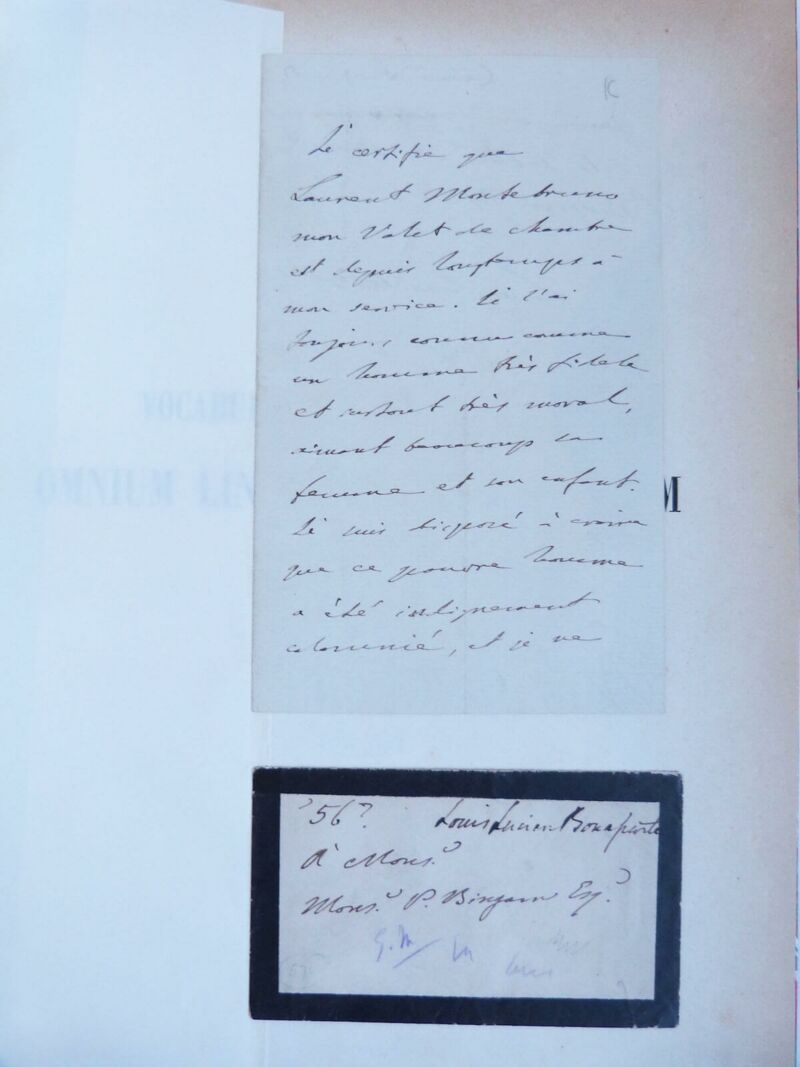 VOCABU
OMNIUM LIN M
Je certifie que
Laurent Montebruno
mon Valet de chambre
est depuis longtemps à
mon service. Je l'ai
toujours connu comme
un homme très fidele
et surtout très moral,
aimant beaucoup sa
femme et son enfant.
Je suis disposé à croire
que ce pauvre homme
a été indignement
calomnié, et je ne
'56? Louis Lucien Bonaparte
A Monsr
Monsr P. Bingam Esqr